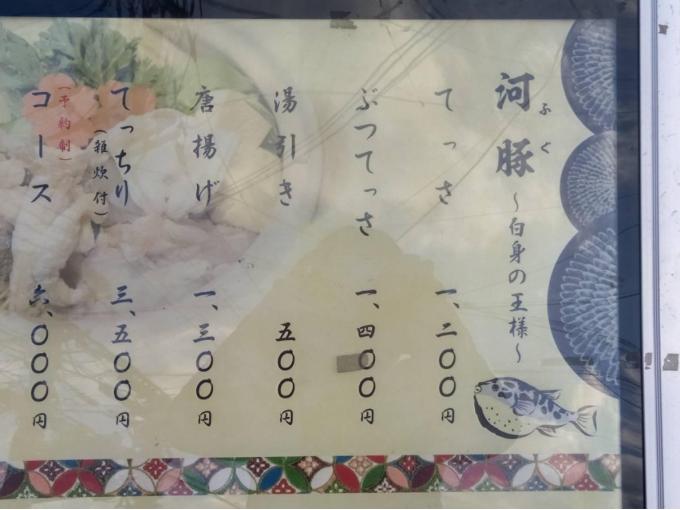 河豚
ふぐ
～白身の王様～
てっさ 一、二〇〇円
ぶつてっさ 一、四〇〇円
湯引き 五〇〇円
唐揚げ 一、三〇〇円
てっちり 三、五〇〇円
（雑炊付）
コース 六、〇〇〇円
（予約制）